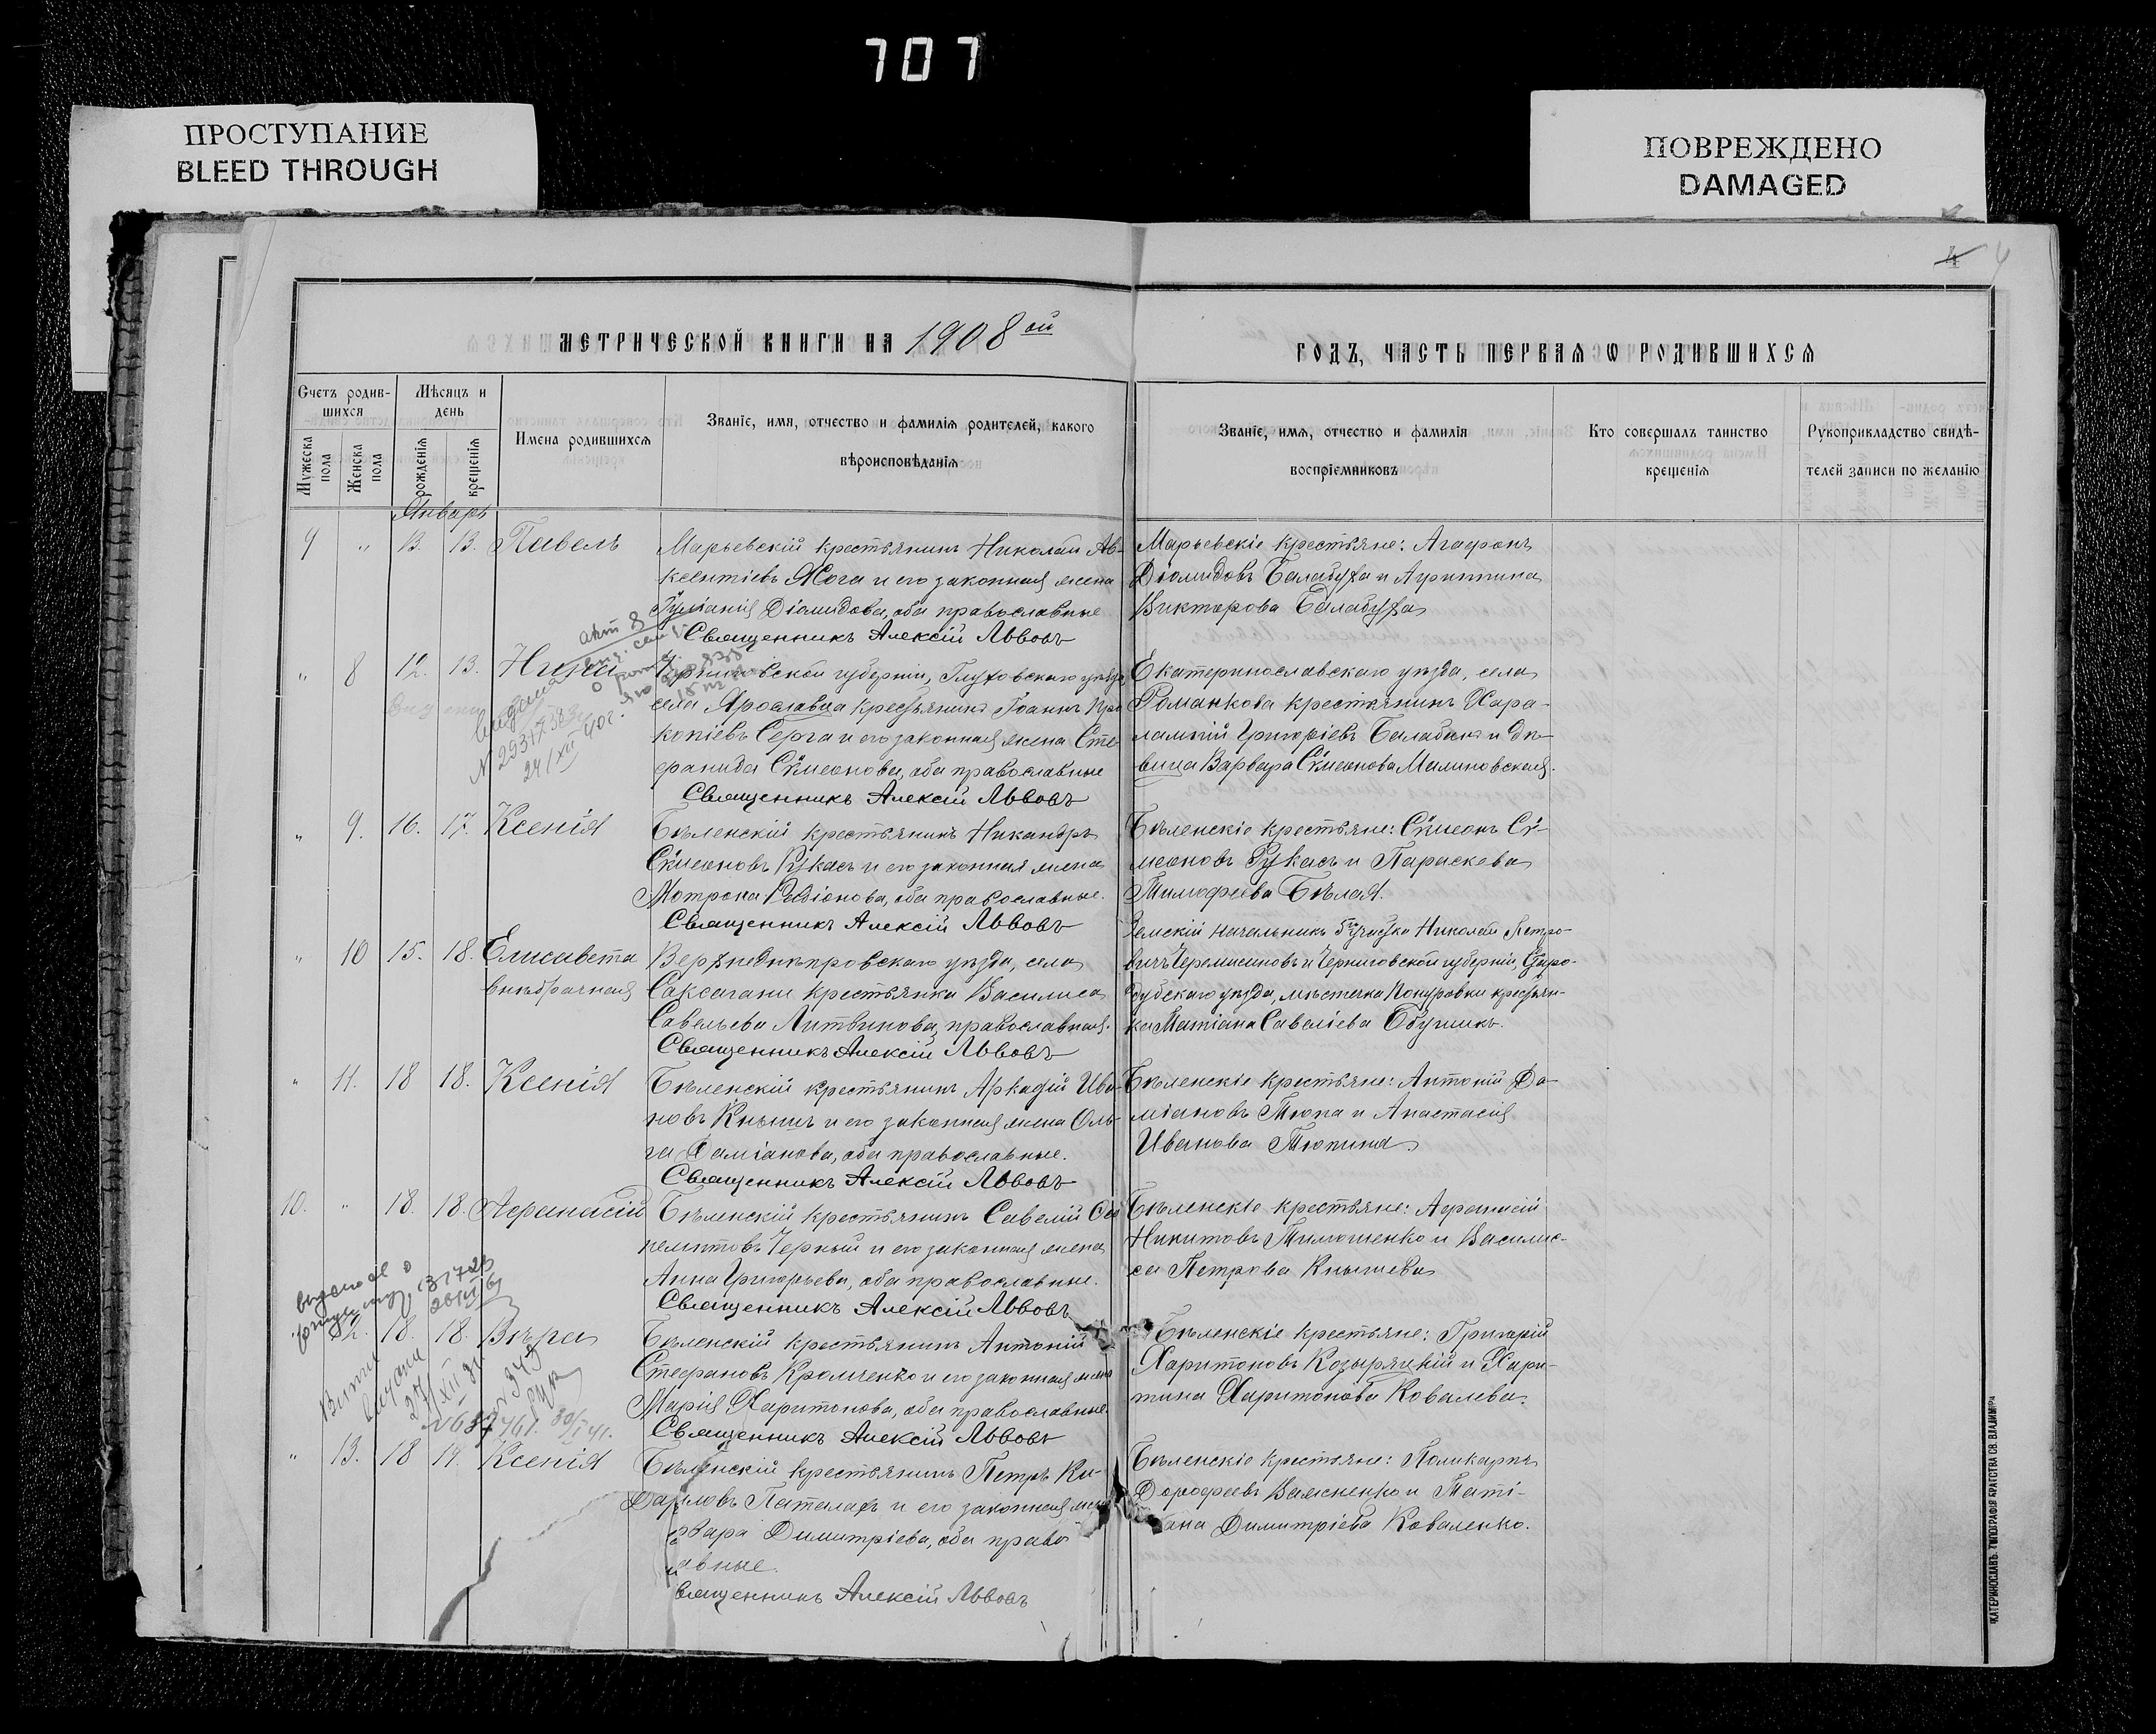 707
ПРОСТУПАНИЕ
BLEED THROUGH
ПОВРЕЖДЕНО
DAMAGED
4
МЕТРИЧЕСКОЙ КНИГИ НА 1908 ой
ГОДЪ, ЧАСТЬ ПЕРВАЯ Ѡ РОДИВШИХСЯ
Счетъ родив-
шихся
Мужеска
пола
Женска
пола
Мѣсяцъ и
день
рожденія
крещенія
Имена родившихся
Званіе, имя, отчество и фамилія родителей, какого
вѣроисповѣданія
Званіе, имя, отчество и фамилія
воспріемниковъ
Кто совершалъ таинство
крещенія
Рукоприкладство свидѣ-
телей записи по желанію
Январь
9 " 13. 13. Павелъ
Марьевскій крестьянинъ Николай Ав-
ксентіевъ Жога и его законная жена
Іуліанія Діомидова, оба православные
Священникъ Алексій Львовъ
Марьевскіе крестьяне: Агафонъ
Діомидовъ Балабуха и Агриппина
Викторова Балабуха
" 8 12. 13. Нина
Черниговской губерніи, Глуховскаго уѣзда,
села Ярославца крестьянинъ Іоаннъ Про
копіевъ Серга и его законная жена Сте
фанида Сѵмеонова, оба православные
Священникъ Алексій Львовъ
Екатеринославскаго уѣзда, села
Романкова крестьянинъ Хара-
лампій Григоріевъ Балабанъ и дѣ-
вица Варвара Сѵмеонова Малиновская.
" 9. 16. 17. Ксенія
Бѣленскій крестьянинъ Никандръ
Сѵмеоновъ Рукасъ и его законная жена
Мотрона Родіонова, оба православные.
Священникъ Алексій Львовъ
Бѣленскіе крестьяне: Сѵмеонъ Сѵ-
меоновъ Рукасъ и Параскева
Тимофеева Бѣлая.
" 10 15. 18. Елисавета
внѣбрачная
Верхнеднѣпровскаго уѣзда, села
Саксагани крестьянка Василиса
Савельева Литвинова, православная.
Священникъ Алексій Львовъ
Земскій начальникъ 5го участка Николай Петро-
вичъ Черемисиновъ и Черниговской губерніи, Старо-
дубскаго уѣзда, мѣстечка Понуровки крестьян-
ка Татіана Савеліева
" 11. 18 18. Ксенія
Бѣленскій крестьянинъ Аркадій Ива-
новъ Кнышъ и его законная жена Оль-
га Даміанова, оба православные.
Священникъ Алексій Львовъ
Бѣленскіе крестьяне: Антоній Да-
міановъ Тюпа и Анастасія
Иванова Тюпина
10. " 18. 18. Афанасій
Бѣленскій крестьянинъ Савелій
пемптовъ Черный и его законная жена
Анна Григорьева, оба православные.
Священникъ Алексій Львовъ
Бѣленскіе крестьяне: Афанасій
Никитовъ Тимошенко и Василис-
са Петрова Кнышева
" 12. 18. 18. Вѣра
Бѣленскій крестьянинъ Антоній
Стефановъ Кромченко и его законная жена
Марія Харитонова, оба православные.
Священникъ Алексій Львовъ
Бѣленскіе крестьяне: Григорій
Харитоновъ Козырацкій и Хари-
тина Харитонова Ковалева.
" 13. 18 19. Ксенія
Бѣленскій крестьянинъ Петръ Ки-
и его законная жена
вара Димитріева, оба право
авные.
вященникъ Алексій Львовъ
Бѣленскіе крестьяне: Поликарпъ
Дорофеевъ и Таті-
ана Димитріева Коваленко.
ЕКАТЕРИНОСЛАВЪ. ТИПОГРАФІЯ БРАТСТВА СВ. ВЛАДИМІРА